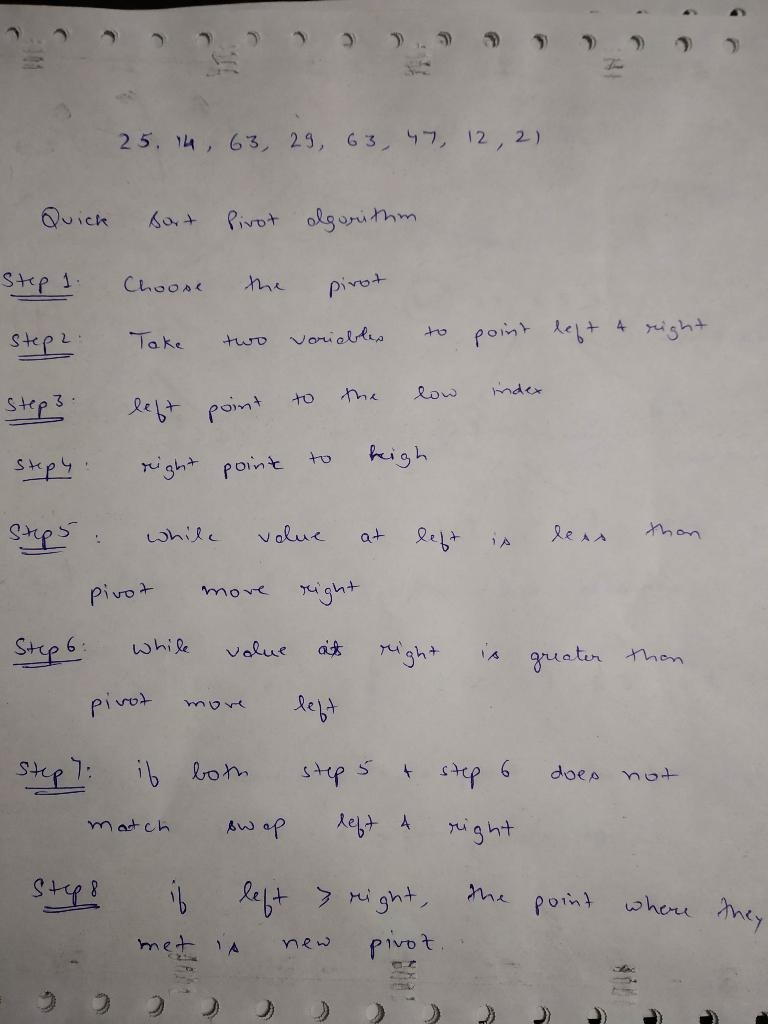 25. 14, 63, 29, 63, 47, 12, 21
Quick Sort Pivot algorithm
Step 1: Choose the pivot
Step 2: Take two variables to point left & right
Step 3: left point to the low index
Step 4: right point to heigh
Step 5: while value at left is less than
pivot move right
Step 6: while value at right is greater than
pivot move left
Step 7: if both step 5 & step 6 does not
match swap left & right
Step 8 if left ⩾ right, the point where they
met is new pivot.